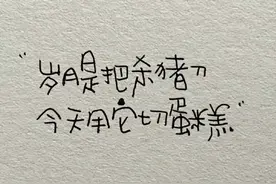 "岁月是把杀猪刀
今天用它切蛋糕"